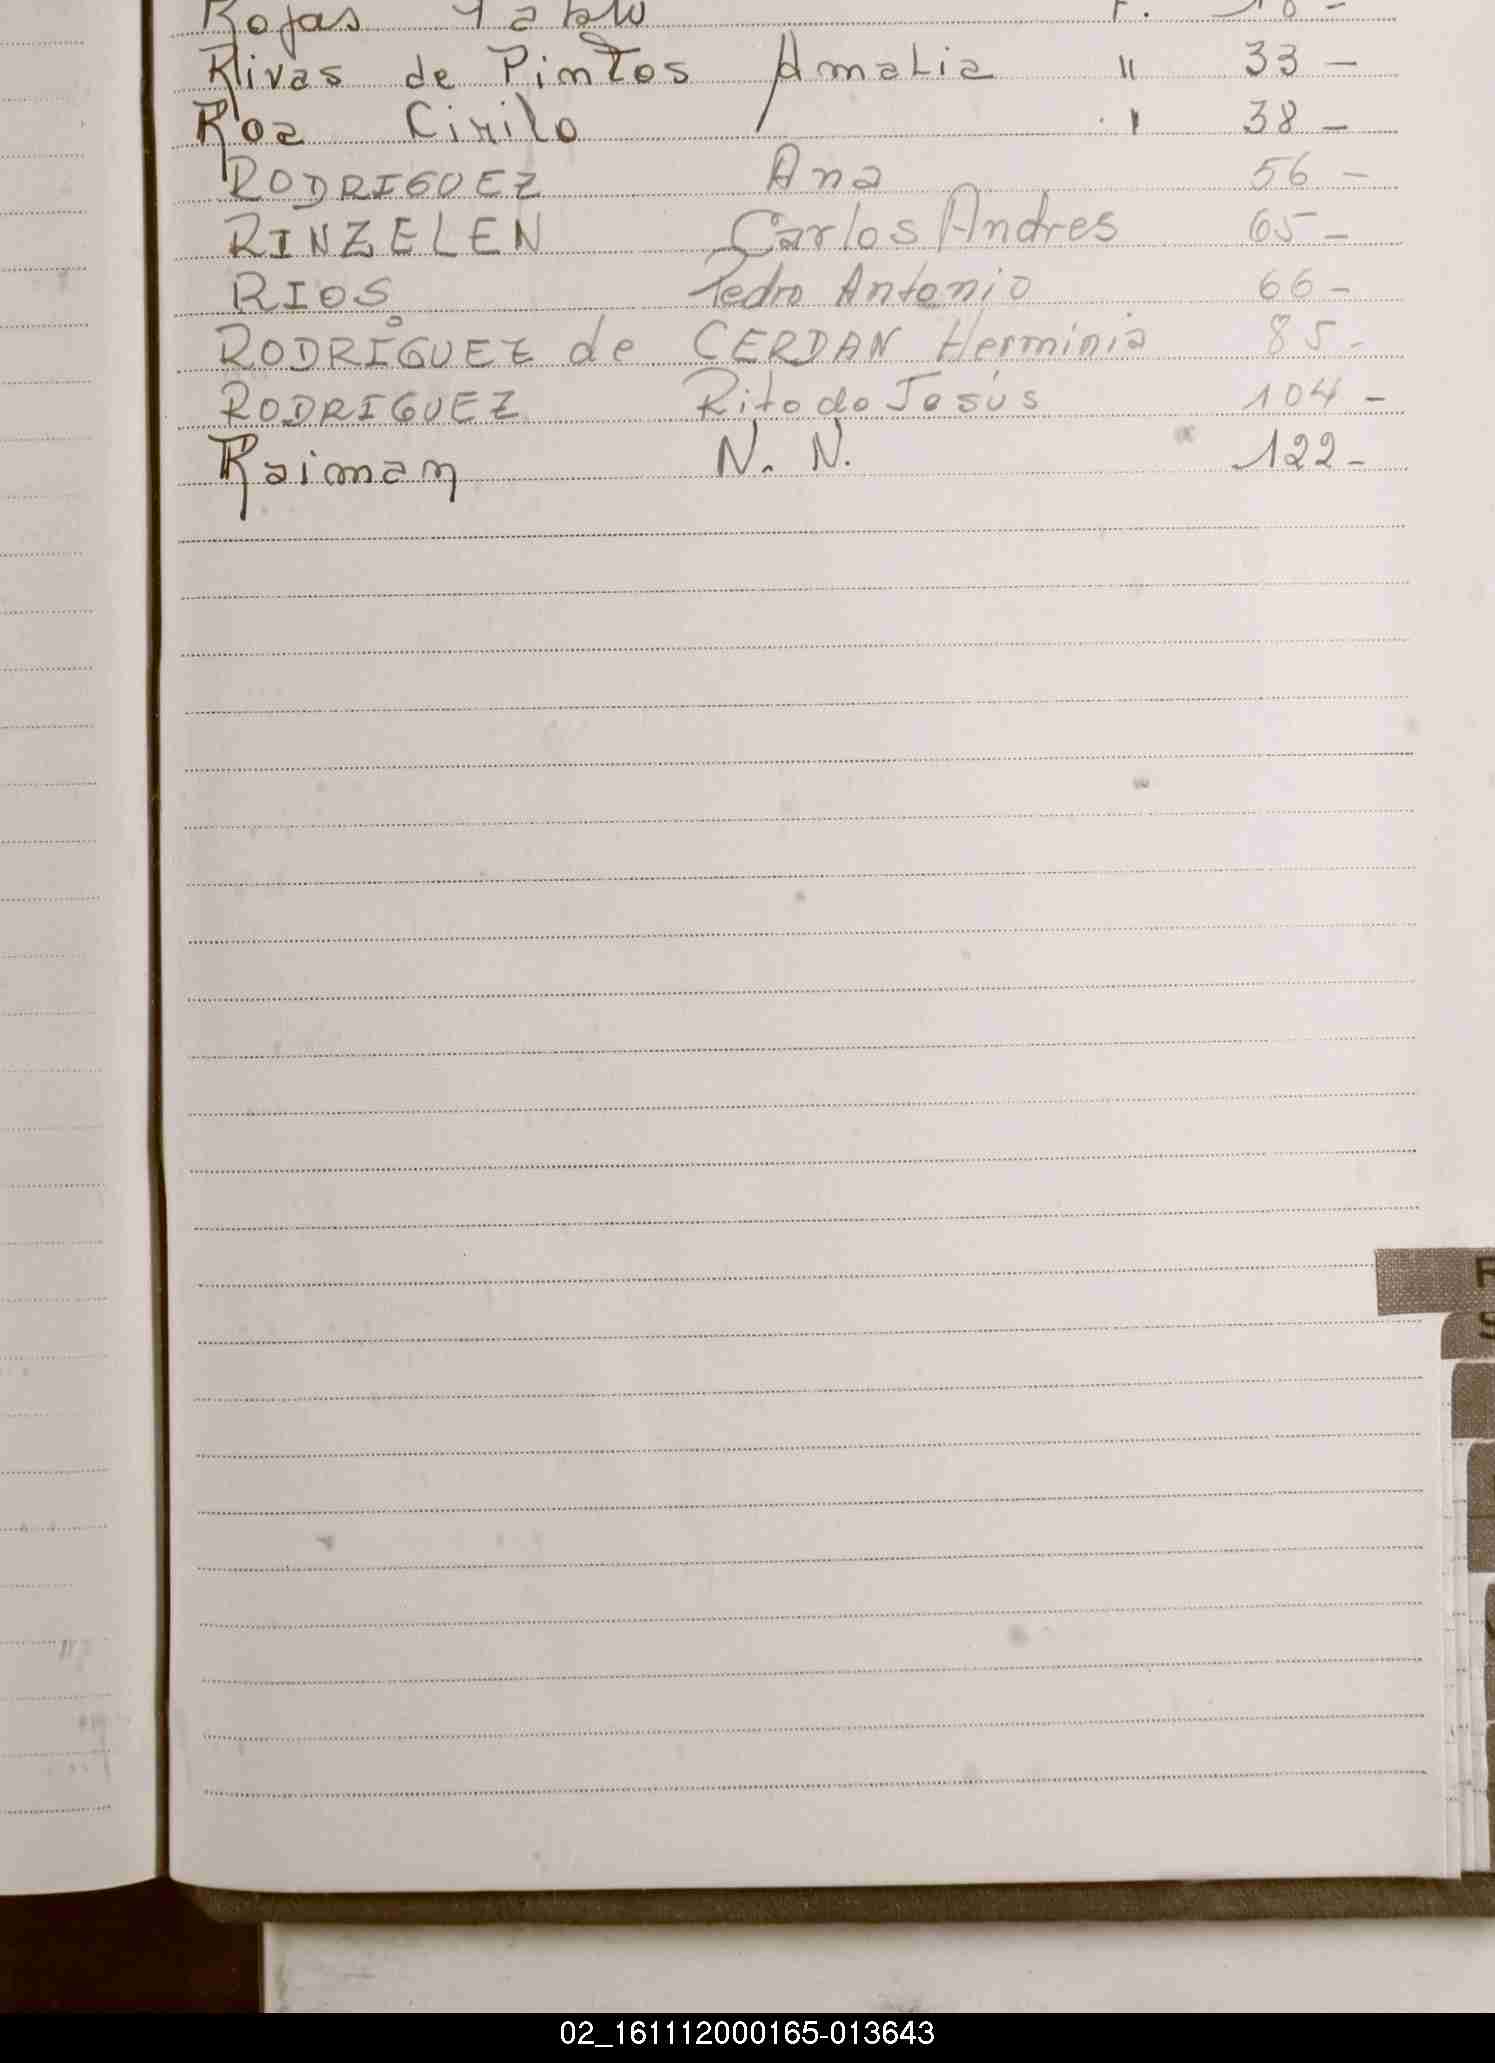 Rojas Pablo F. 18 -
Rivas de Pintos Amalia " 33 -
Roa Cirilo " 38 -
RODRIGUEZ Ana 56 -
RINZELEN Carlos Andres 65 -
RIOS Pedro Antonio 66 -
RODRÍGUEZ de CERDAN Herminia 85 -
RODRIGUEZ Rito de Jesús 104 -
Raiman N. N. 122 -
R
S
02_161112000165-013643